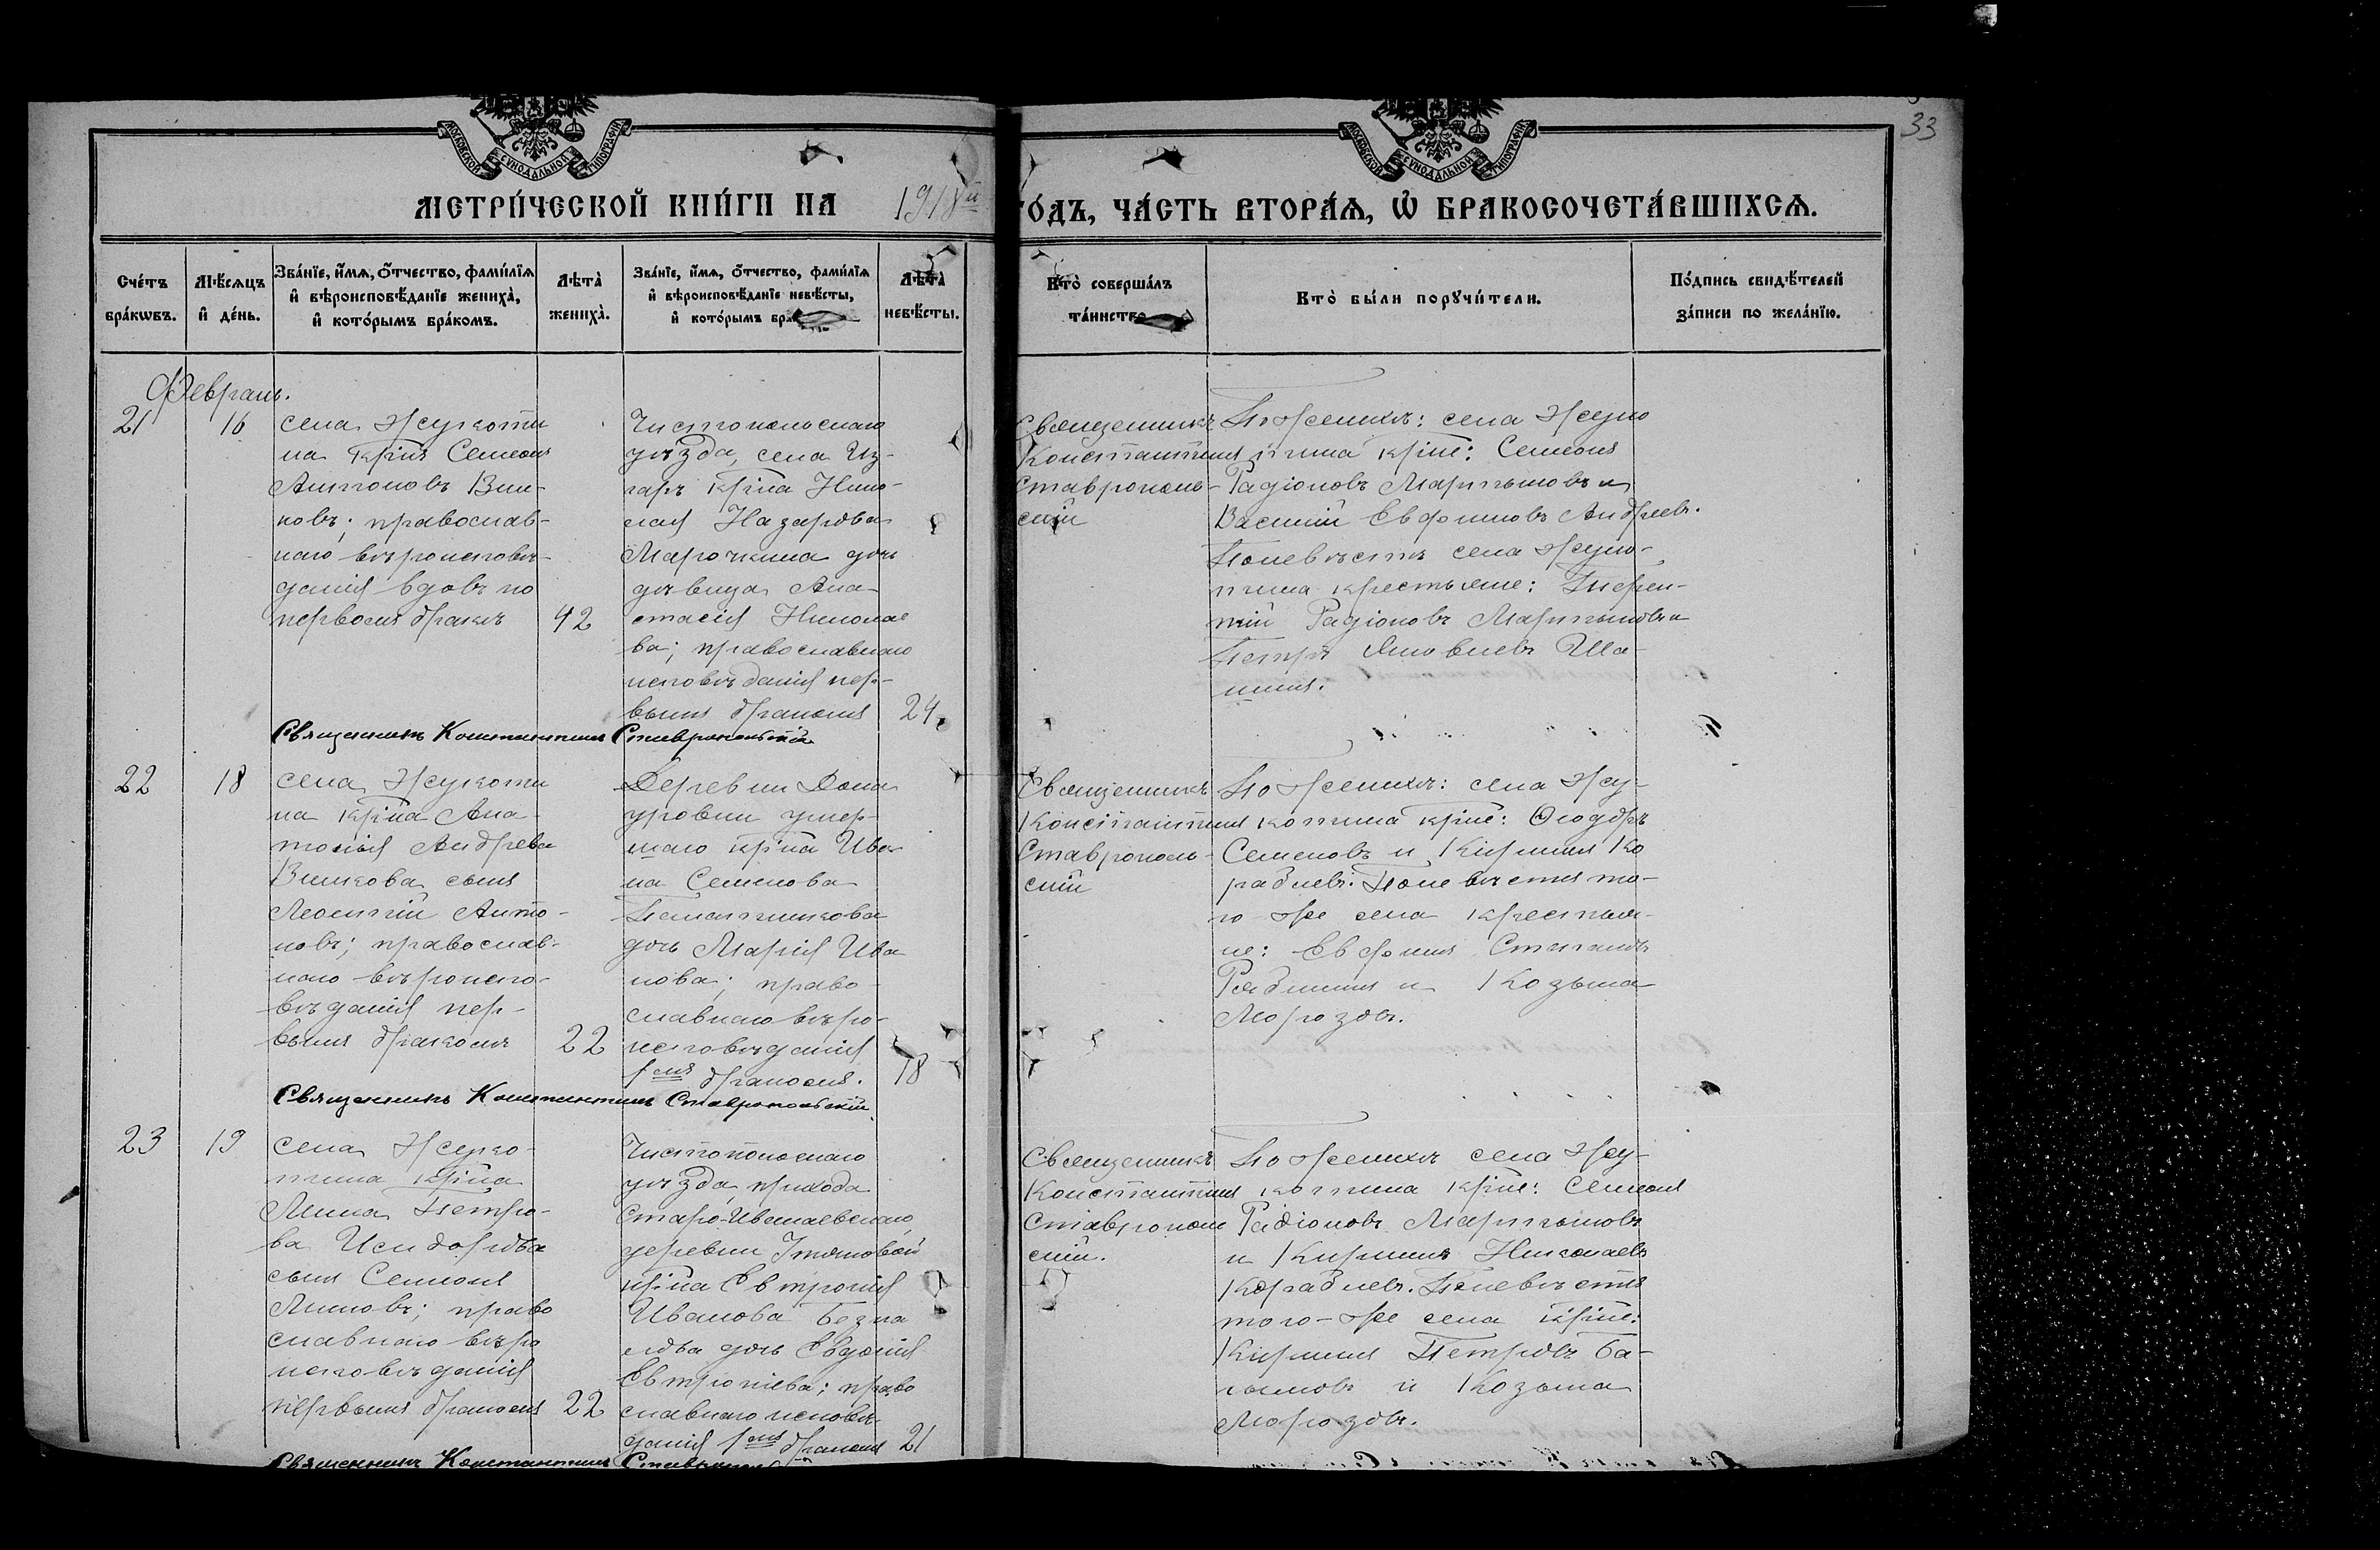 33
МОСКОВСКОЙ СѴНОДАЛЬНОЙ ТИПОГРАФІИ
МОСКОВСКОЙ СѴНОДАЛЬНОЙ ТИПОГРАФІИ
МЕТРИ́ЧЕСКОЙ КНИ́ГИ НА 1918й
ГО́ДЪ, ЧА́СТЬ ВТОРА́Ѧ, Ѡ҆ БРАКОСОЧЕТА́ВШИХСѦ.
Сче́тъ бра́кѡвъ.
Мѣ́сѧцъ и҆ де́нь.
Зва́нїе, и҆́мѧ, ѻ҆́тчество, фами́лїѧ
и҆ вѣроисповѣ́данїе жениха̀,
и҆ кото́рымъ бра́комъ.
Лѣта̀ жениха̀.
Зва́нїе, и҆́мѧ, ѻ҆́тчество, фами́лїѧ
и҆ вѣроисповѣ́данїе невѣ́сты,
и҆ кото́рымъ бра
Лѣта̀ невѣ́сты.
Кто̀ соверша́лъ
та́инство
Кто̀ бы́ли порꙋчи́тели.
По́дпись свидѣ́телей
за́писи по жела́нїю.
Февраль.
21
16
села Жукоти
на кр҃інъ Семеонъ
Антоновъ Вин-
ковъ; православ-
наго вѣроисповѣ-
данія вдовъ по
первомъ бракѣ
42
Чистопольскаго
уѣзда, села Из-
гаръ кр҃іна Нико-
лая Назарова
Марочкина дочь
дѣвица Ана-
стасія Николае
ва; православнаго
исповѣданія пер-
вымъ бракомъ
24
Священникъ
Константинъ
Ставрополь-
скій
По женихѣ: села Жуко
тина кр҃іне: Семеонъ
Радіоновъ Мартыновъ и
Василій Евфимовъ Андреевъ.
По невѣстѣ села Жуко-
тина крестьяне: Терен-
тій Радіоновъ Мартыновъ и
Петръ Яковлевъ Ша-
шинъ.
Священникъ Константинъ Ставропольскій
22
18
села Жукоти
на кр҃іна Ана-
толія Андреева
Винкова сынъ
Леонтій Анто-
новъ; православ-
наго вѣроиспо-
вѣданія пер-
вымъ бракомъ
22
Деревни Дона
уровки умер-
шаго кр҃іна Ива
на Семенова
дочь Марія Ива
нова; право-
славнаго вѣро-
исповѣданія
1емъ бракомъ.
18
Священникъ
Константинъ
Ставрополь-
скій
По женихѣ: села Жу-
котина кр҃іне: Ѳеодоръ
Семеновъ и Кирилъ Ко
раблевъ. По невѣстѣ то-
го-же села крестья-
не: Евфимъ Степановъ
Рябининъ и Козьма
Морозовъ.
Священникъ Константинъ Ставропольскій
23
19
села Жуко-
тина кр҃іна
Лина Петро-
ва Исидорова
сынъ Семеонъ
Линовъ; право
славнаго вѣро
исповѣданія
первымъ бракомъ
22
Чистопольскаго
уѣзда, прихода
Старо-Ивановскаго
деревни
кр҃іна Евтропія
Иванова
дочь Евдокія
Евтропіева; право
славнаго исповѣ-
данія 1емъ бракомъ
21
Священникъ
Константинъ
Ставрополь
скій.
По женихѣ села Жу-
котина кр҃іне: Семеонъ
Радіоновъ Мартыновъ
и Кирилъ Николаевъ
Кораблевъ. По невѣстѣ
того-же села кр҃іне:
Кирилъ Петровъ Ба-
лымовъ и Козьма
Морозовъ.
Священникъ Константинъ